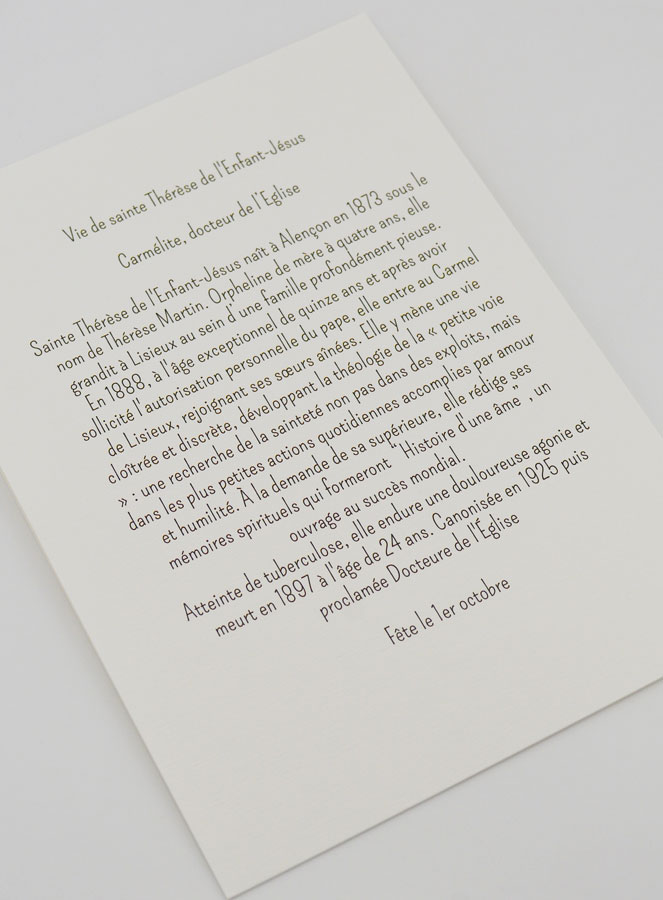 Vie de sainte Thérèse de l'Enfant-Jésus
Carmélite, docteur de l'Eglise
Sainte Thérèse de l'Enfant-Jésus naît à Alençon en 1873 sous le
nom de Thérèse Martin. Orpheline de mère à quatre ans, elle
grandit à Lisieux au sein d'une famille profondément pieuse.
En 1888, à l'âge exceptionnel de quinze ans et après avoir
sollicité l'autorisation personnelle du pape, elle entre au Carmel
de Lisieux, rejoignant ses sœurs aînées. Elle y mène une vie
cloîtrée et discrète, développant la théologie de la « petite voie
» : une recherche de la sainteté non pas dans des exploits, mais
dans les plus petites actions quotidiennes accomplies par amour
et humilité. À la demande de sa supérieure, elle rédige ses
mémoires spirituels qui formeront "Histoire d'une âme" , un
ouvrage au succès mondial.
Atteinte de tuberculose, elle endure une douloureuse agonie et
meurt en 1897 à l'âge de 24 ans. Canonisée en 1925 puis
proclamée Docteure de l'Église
Fête le 1er octobre